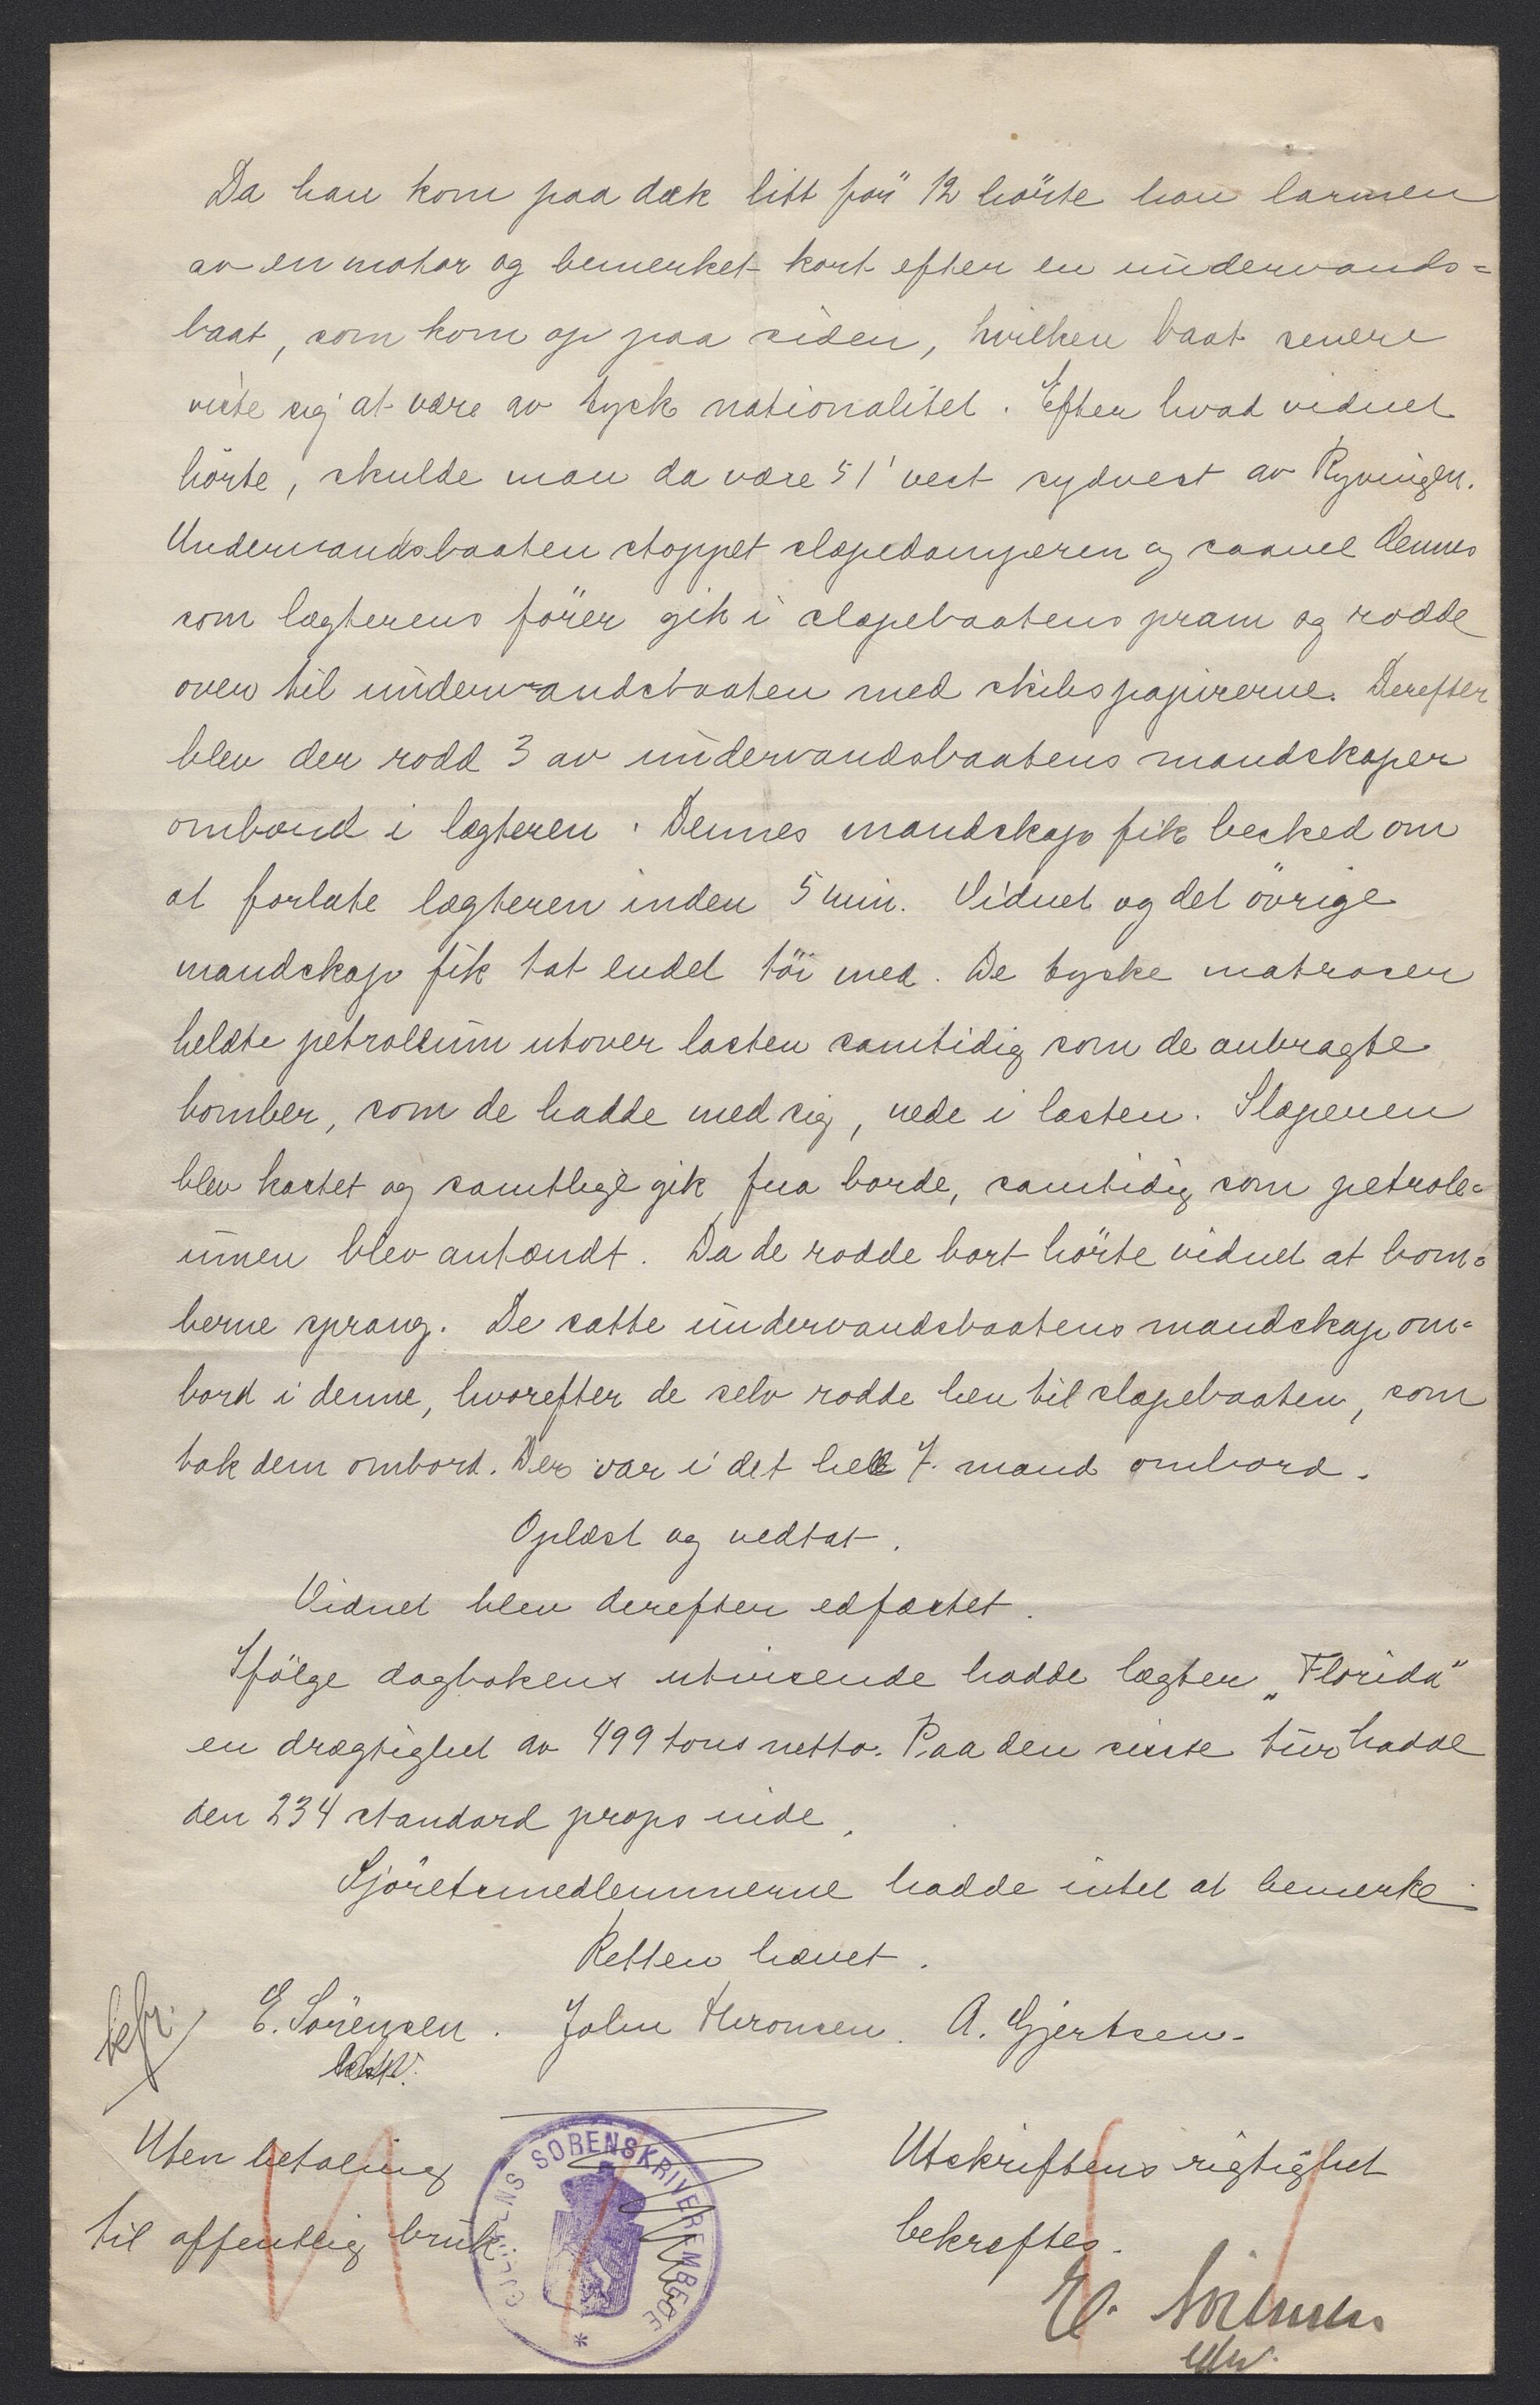 Da han kom paa dæk litt før 12 hörte han larmen
av en motor og bemerket kort efter en undervands=
baat, som kom op paa siden, hvilken baat senere
viste sig at være av tysk nationalitet. Efter hvad vidnet
hörte, skulde man da være 51' vest sydvest av Ryvingen.
Undervandsbaaten stoppet slæpedamperen og saavel dennes
som lægterens förer gik i slæpebaatens pram og rodde
over til undervandsbaaten med skibspapirerne. Derefter
blev der rodd 3 av undervandsbaatens mandskaper
ombord i lægteren. Dennes mandskap fik besked om
at forlate lægteren inden 5 min. Vidnet og det övrige
mandskap fik tat endel töi med. De tyske matroser
heldte petroleum utover lasten samtidig som de anbragte
bomber, som de hadde med sig, nede i lasten. Slæperen
blev kastet og samtlige gik fra borde, samtidig som petrole=
umen blev antændt. Da de rodde bort hörte vidnet at bom=
berne sprang. De satte undervandsbaatens mandskap om=
bord i denne, hvorefter de selv rodde hen til slæpebaaten, som
tok dem ombord. Der var i det hele 7 mand ombord.
Oplæst og vedtat.
Vidnet blev derefter edfæstet.
Ifölge dagbokens utvisende hadde lægter „Florida"
en drægtighet av 499 tons netto. Paa den siste tur hadde
den 234 standard props inde.
Sjöretsmedlemmerne hadde intet at bemerke.
Retten hævet.
E. Sörensen. John Aronsen. A. Gjertsen.
Uten betaling
til offentlig bruk
SORENSKRIVEREMBEDE
Utskriftens rigtighet
bekræftes.
E. Sörensen